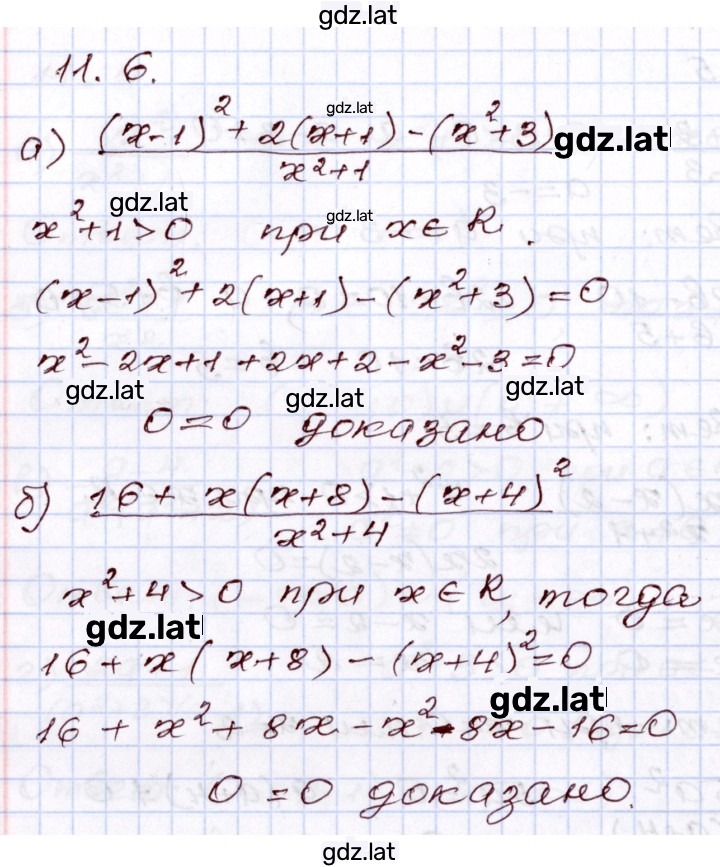 gdz.lat
11. 6.
gdz.lat
а) ((x-1)² + 2(x+1) - (x²+3)) / (x²+1)
gdz.lat
gdz.lat
gdz.lat
x²+1>0 при x∈R.
(x-1)² + 2(x+1) - (x²+3) = 0
x² - 2x+1+2x+2-x²-3=0
gdz.lat
gdz.lat
gdz.lat
0=0 доказано
б) (16 + x(x+8) - (x+4)²) / (x²+4)
x²+4>0 при x∈R, тогда
gdz.lat
16 + x(x+8) - (x+4)²=0
gdz.lat
16 + x² + 8x - x² - 8x - 16=0
0=0 доказано.
gdz.lat